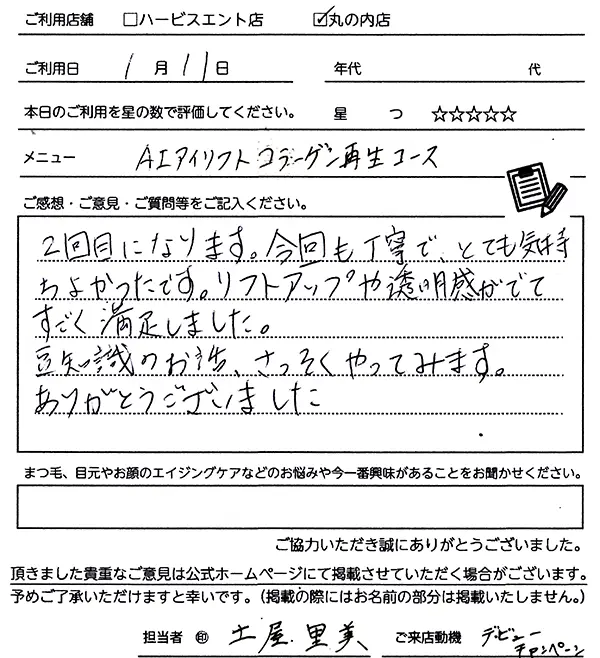 ご利用店舗 □ハービスエント店 ☑丸の内店
ご利用日 1月11日 年代 代
本日のご利用を星の数で評価してください。 星 つ ☆☆☆☆☆
メニュー AIアイリフト コラーゲン再生コース
ご感想・ご意見・ご質問等をご記入ください。
2回目になります。今回も丁寧で、とても気持
ちよかったです。リフトアップや透明感がでて
すごく満足しました。
豆知識のお話、さっそくやってみます。
ありがとうございました
まつ毛、目元やお顔のエイジングケアなどのお悩みや今一番興味があることをお聞かせください。
ご協力いただき誠にありがとうございました。
頂きました貴重なご意見は公式ホームページにて掲載させていただく場合がございます。
予めご了承いただけますと幸いです。（掲載の際にはお名前の部分は掲載いたしません。）
担当者 ㊞ 土屋 里美 ご来店動機 デビュー
キャンペーン